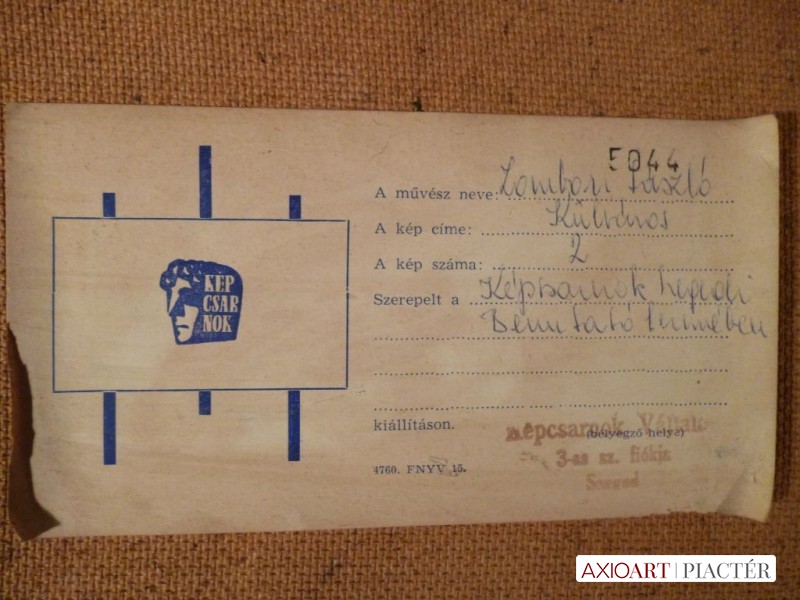 5044
A művész neve: Zombori László
A kép címe: Külváros
A kép száma: 2
Szerepelt a Képcsarnok szegedi
Bemutató termében
kiállításon.
Képcsarnok Vállalat
(bélyegző helye)
3-as sz. fiókja
Szeged
4760. FNYV 15.
KÉP
CSAR
NOK
AXIOART | PIACTÉR